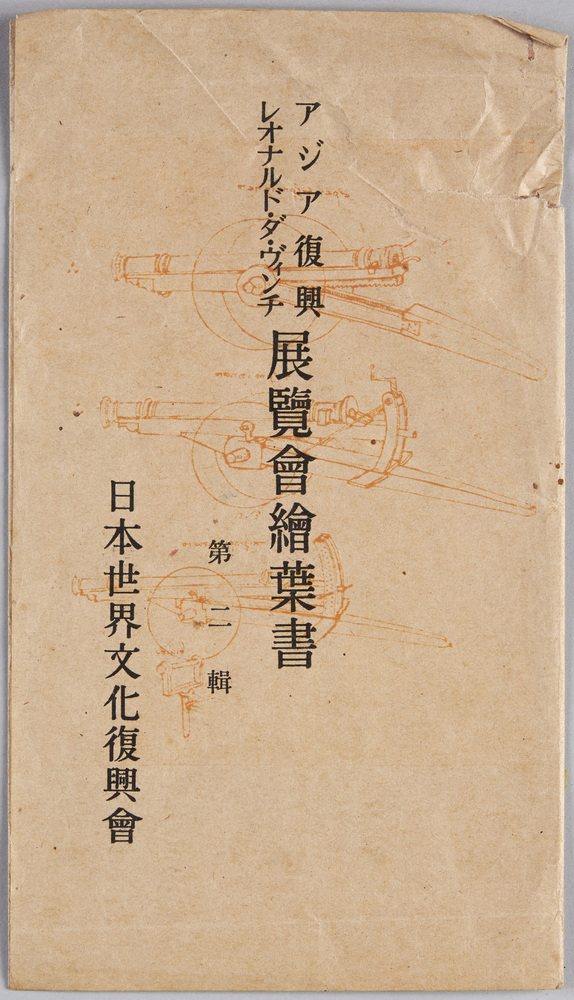 アジア復興
レオナルド・ダ・ヴィンチ
展覽會繪葉書
第二輯
日本世界文化復興會